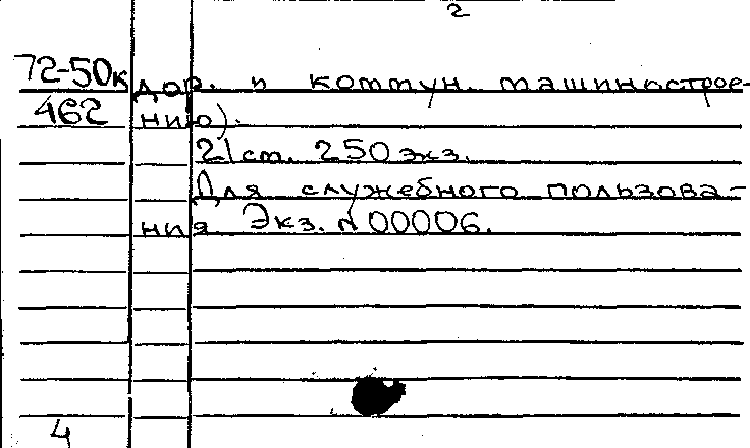 2
72-50к дор. и коммун. машинострое-
462 нию).
21 ст. 250 экз.
Для служебного пользова-
ния. Экз. N 00006.
4